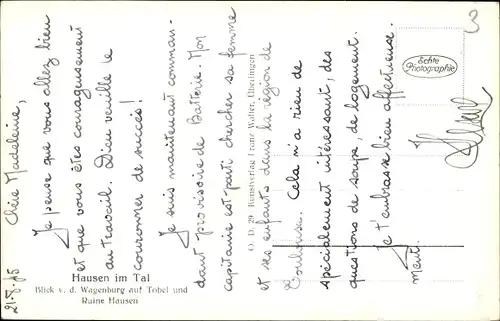 21.5.45
Chère Madeleine,
Je pense que vous allez bien
et que vous êtes courageusement
au travail. Dieu veuille le
couronner de succès!
Je suis maintenant comman-
dant provisoire de Batterie. Mon
capitaine est parti chercher sa femme
et ses enfants dans la région de
Toulouse. Cela n'a rien de
spécialement intéressant, des
questions de soupe, de logement.
Je t'embrasse bien affectueuse-
ment.
Hausen im Tal
Blick v. d. Wagenburg auf Tobel und
Ruine Hausen
O. D. 29 Kunstverlag Franz Walter, Überlingen
Echte
Photographie